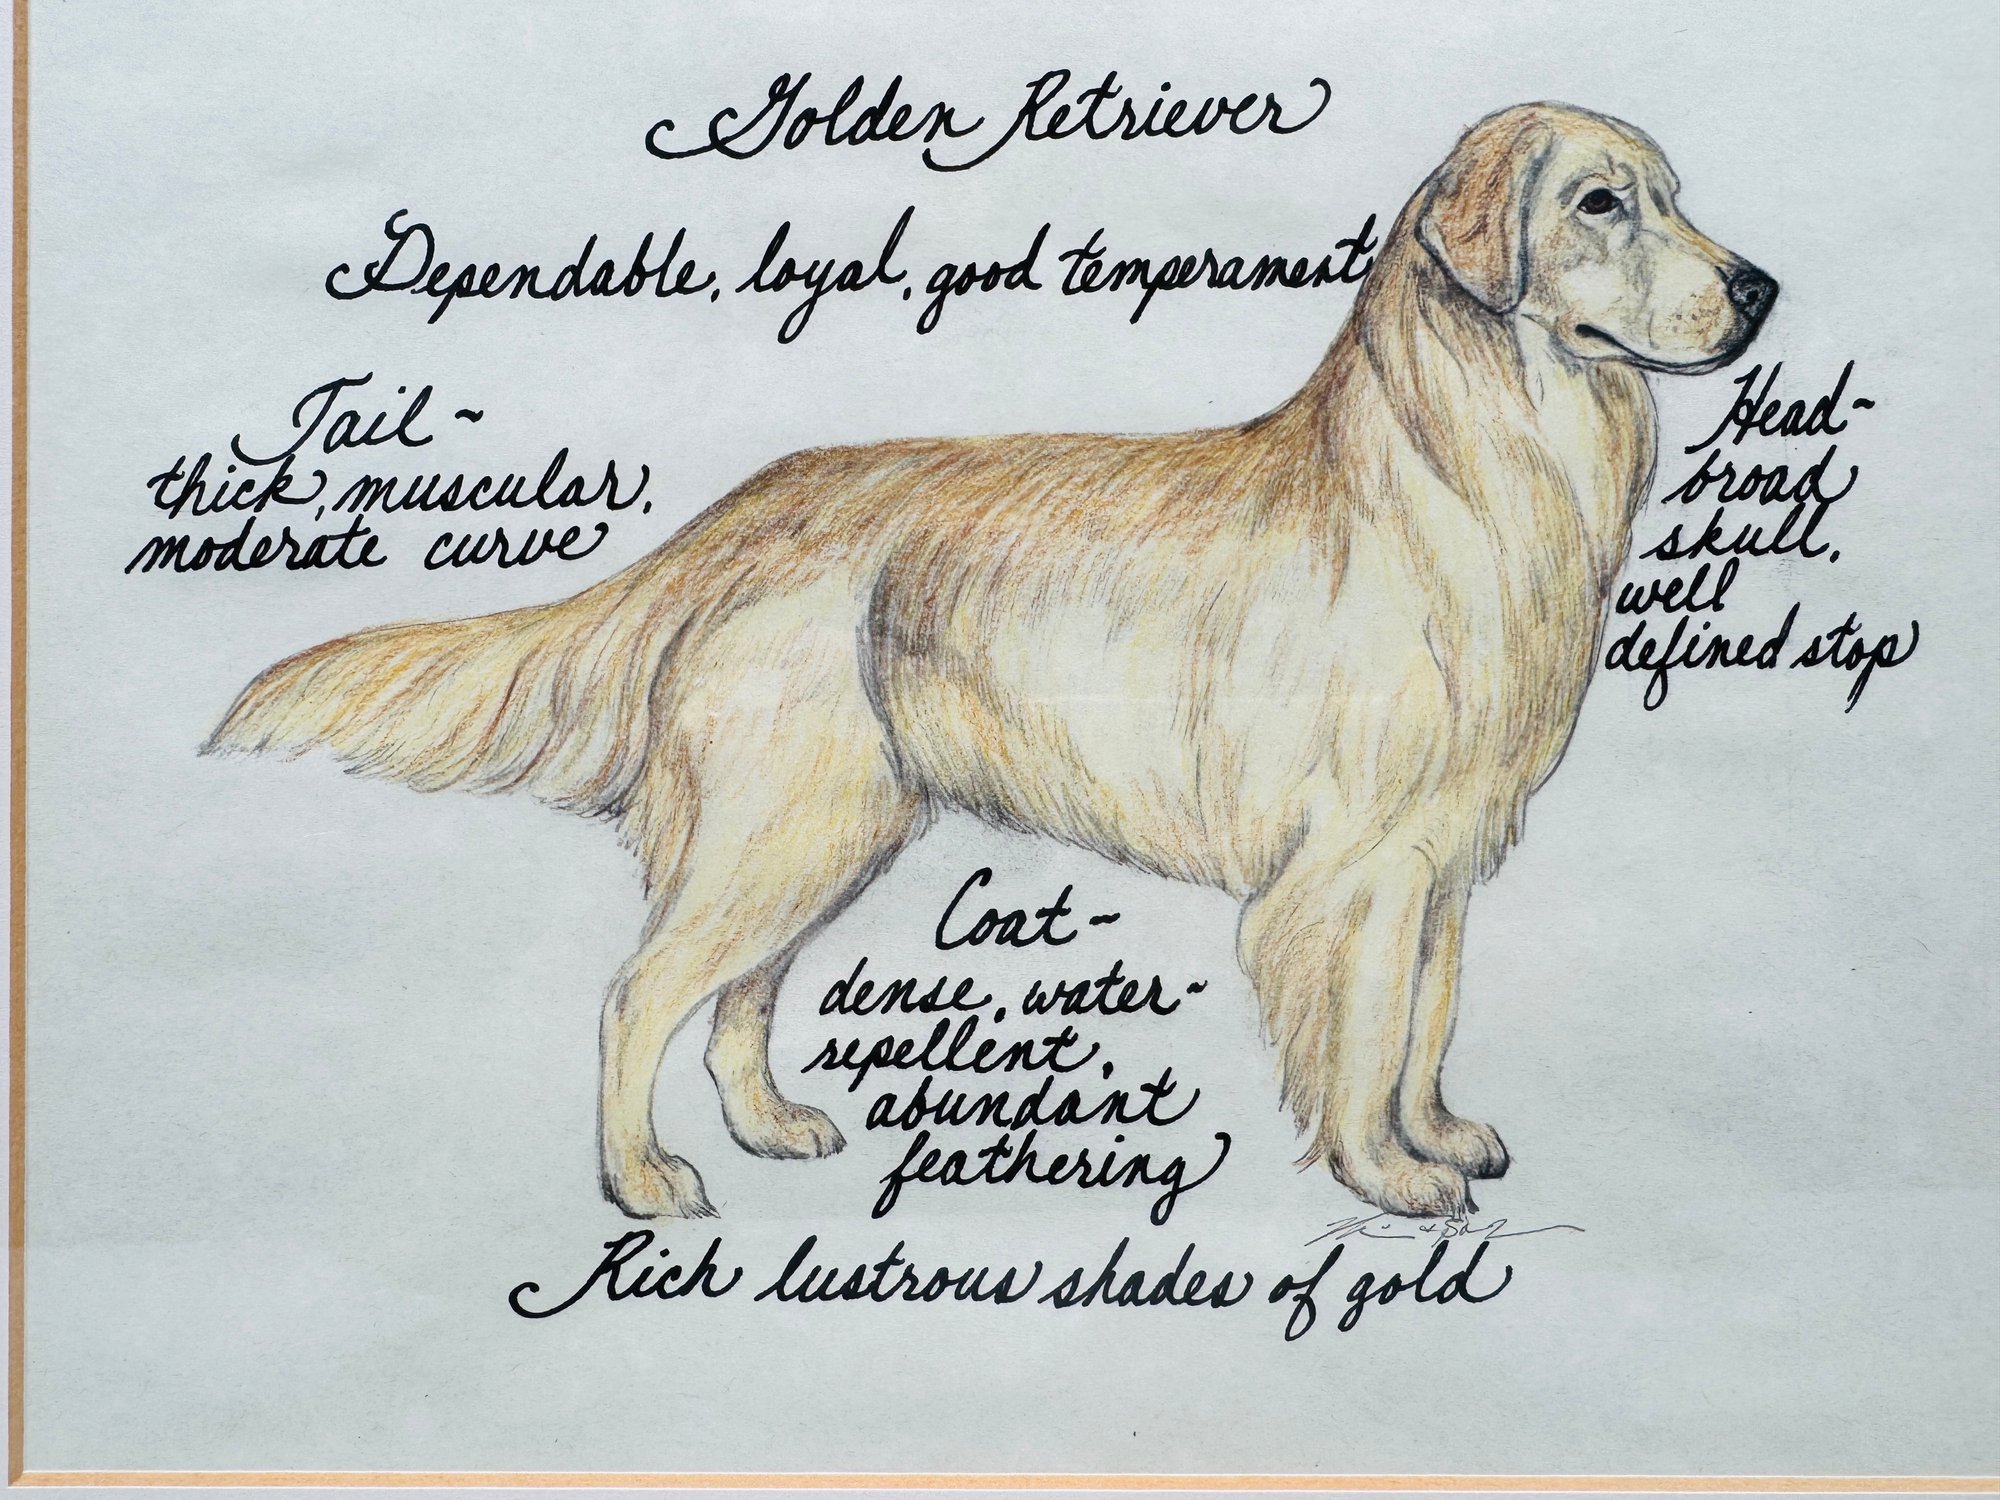 Golden Retriever
Dependable, loyal, good temperament
Tail ~
thick, muscular,
moderate curve
Head ~
broad
skull,
well
defined stop
Coat ~
dense, water ~
repellent,
abundant
feathering
Rich lustrous shades of gold